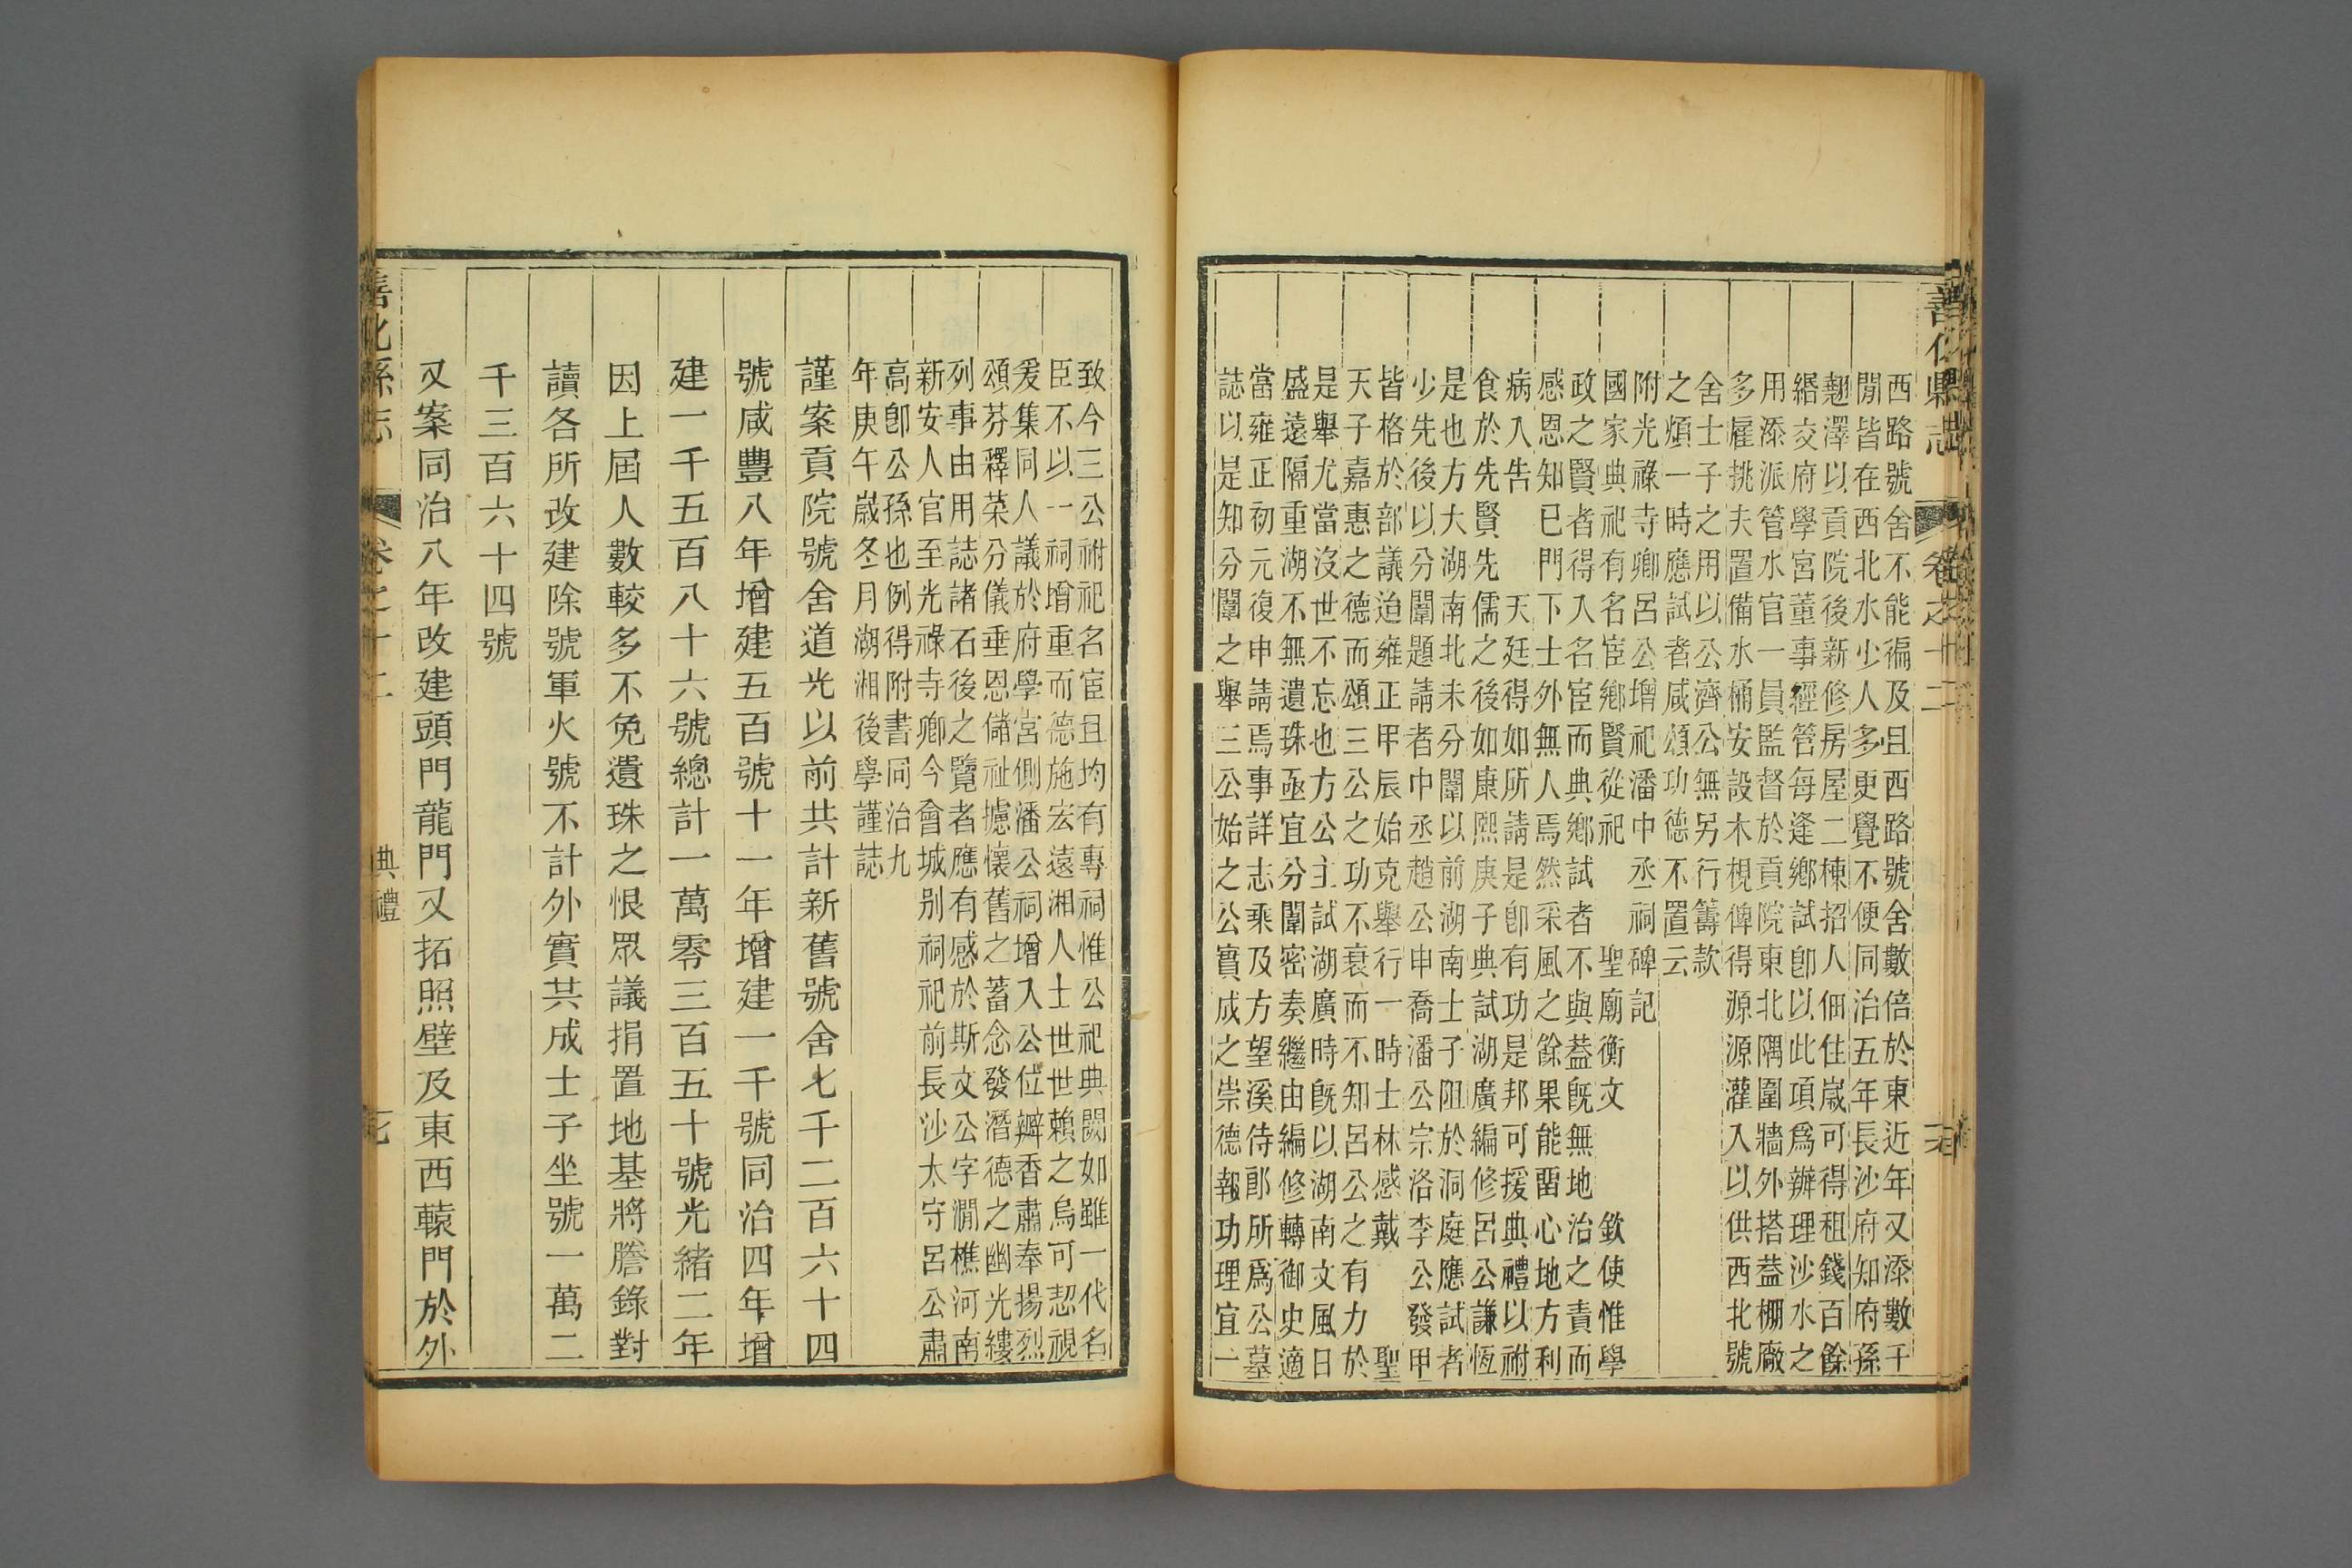 善化縣志 卷之十二
西路號舍不能徧及且西路號舍數倍於東近年又添數千
閒皆在西北水少人多更覺不便同治五年長沙府知府孫
翹澤以貢院後新修房屋二棟招人佃住歲可得租錢百餘
緡交府學宮董事經管每逢鄉試卽以此項爲辦理沙水之
用添派管水官一員監督於貢院東北隅圍牆外搭葢棚廠
多雇挑夫置備水桶安設木梘俾得源源灌入以供西北號
舍士子之用以公濟公無另行籌款
之煩一時應試者咸頌功德不置云
附光祿寺卿呂公增祀潘中丞祠碑記
國家典祀有名宦鄉賢從祀 聖廟衡文 欽使惟學
政之賢者得入名宦而典鄉試者不與葢旣無地治之責而
感恩知已門下士外無人焉然采風之餘果能留心地方利
病入告 天廷得如所請是卽有功是邦可援典禮以祔
食於先賢先儒之後如康熙庚子典試湖廣編修呂公謙恆
是也方大湖南北未分闈以前湖南士子阻於洞庭應試者
少先後以分闈題請者中丞趙公申喬潘公宗洛李公發甲
皆格於部議迨雍正甲辰始克舉行一時士林感戴 聖
天子嘉惠之德而頌三公之功不衰而不知呂公之有力於
是舉尤當沒世不忘也方公主試湖廣時旣以湖南文風日
盛遠隔重湖不無遺珠亟宜分闈密奏繼由編修轉御史適
當雍正初元復申請焉事詳志乘及方望溪侍郎所爲公墓
誌以是知分闈之舉三公始之公實成之崇德報功理宜一
致今三公祔祀名宦且均有專祠惟公祀典闕如雖一代名
臣不以一祠增重而德施宏遠湘人士世世賴之烏可恝視
爰集同人議於府學宮側潘公祠增入公位瓣香肅奉揚烈
頌芬釋菜分儀垂恩儲祉攄懷舊之蓄念發潛德之幽光縷
列事由用誌諸石後之覽者應有感於斯文公字澗樵河南
新安人官至光祿寺卿今會城别祠祀前長沙太守呂公肅
高卽公孫也例得附書同治九
年庚午歲冬月湖湘後學謹誌
謹案貢院號舍道光以前共計新舊號舍七千二百六十四
號咸豐八年增建五百號十一年增建一千號同治四年增
建一千五百八十六號總計一萬零三百五十號光緒二年
因上屆人數較多不免遺珠之恨眾議捐置地基將謄錄對
讀各所改建除號軍火號不計外實共成士子坐號一萬二
千三百六十四號
又案同治八年改建頭門龍門又拓照壁及東西轅門於外
善化縣志 卷之十二 典禮 七